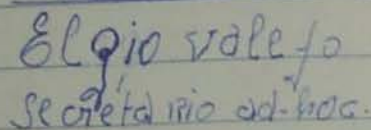 Elgio vale jo
secretário ad-hoc.